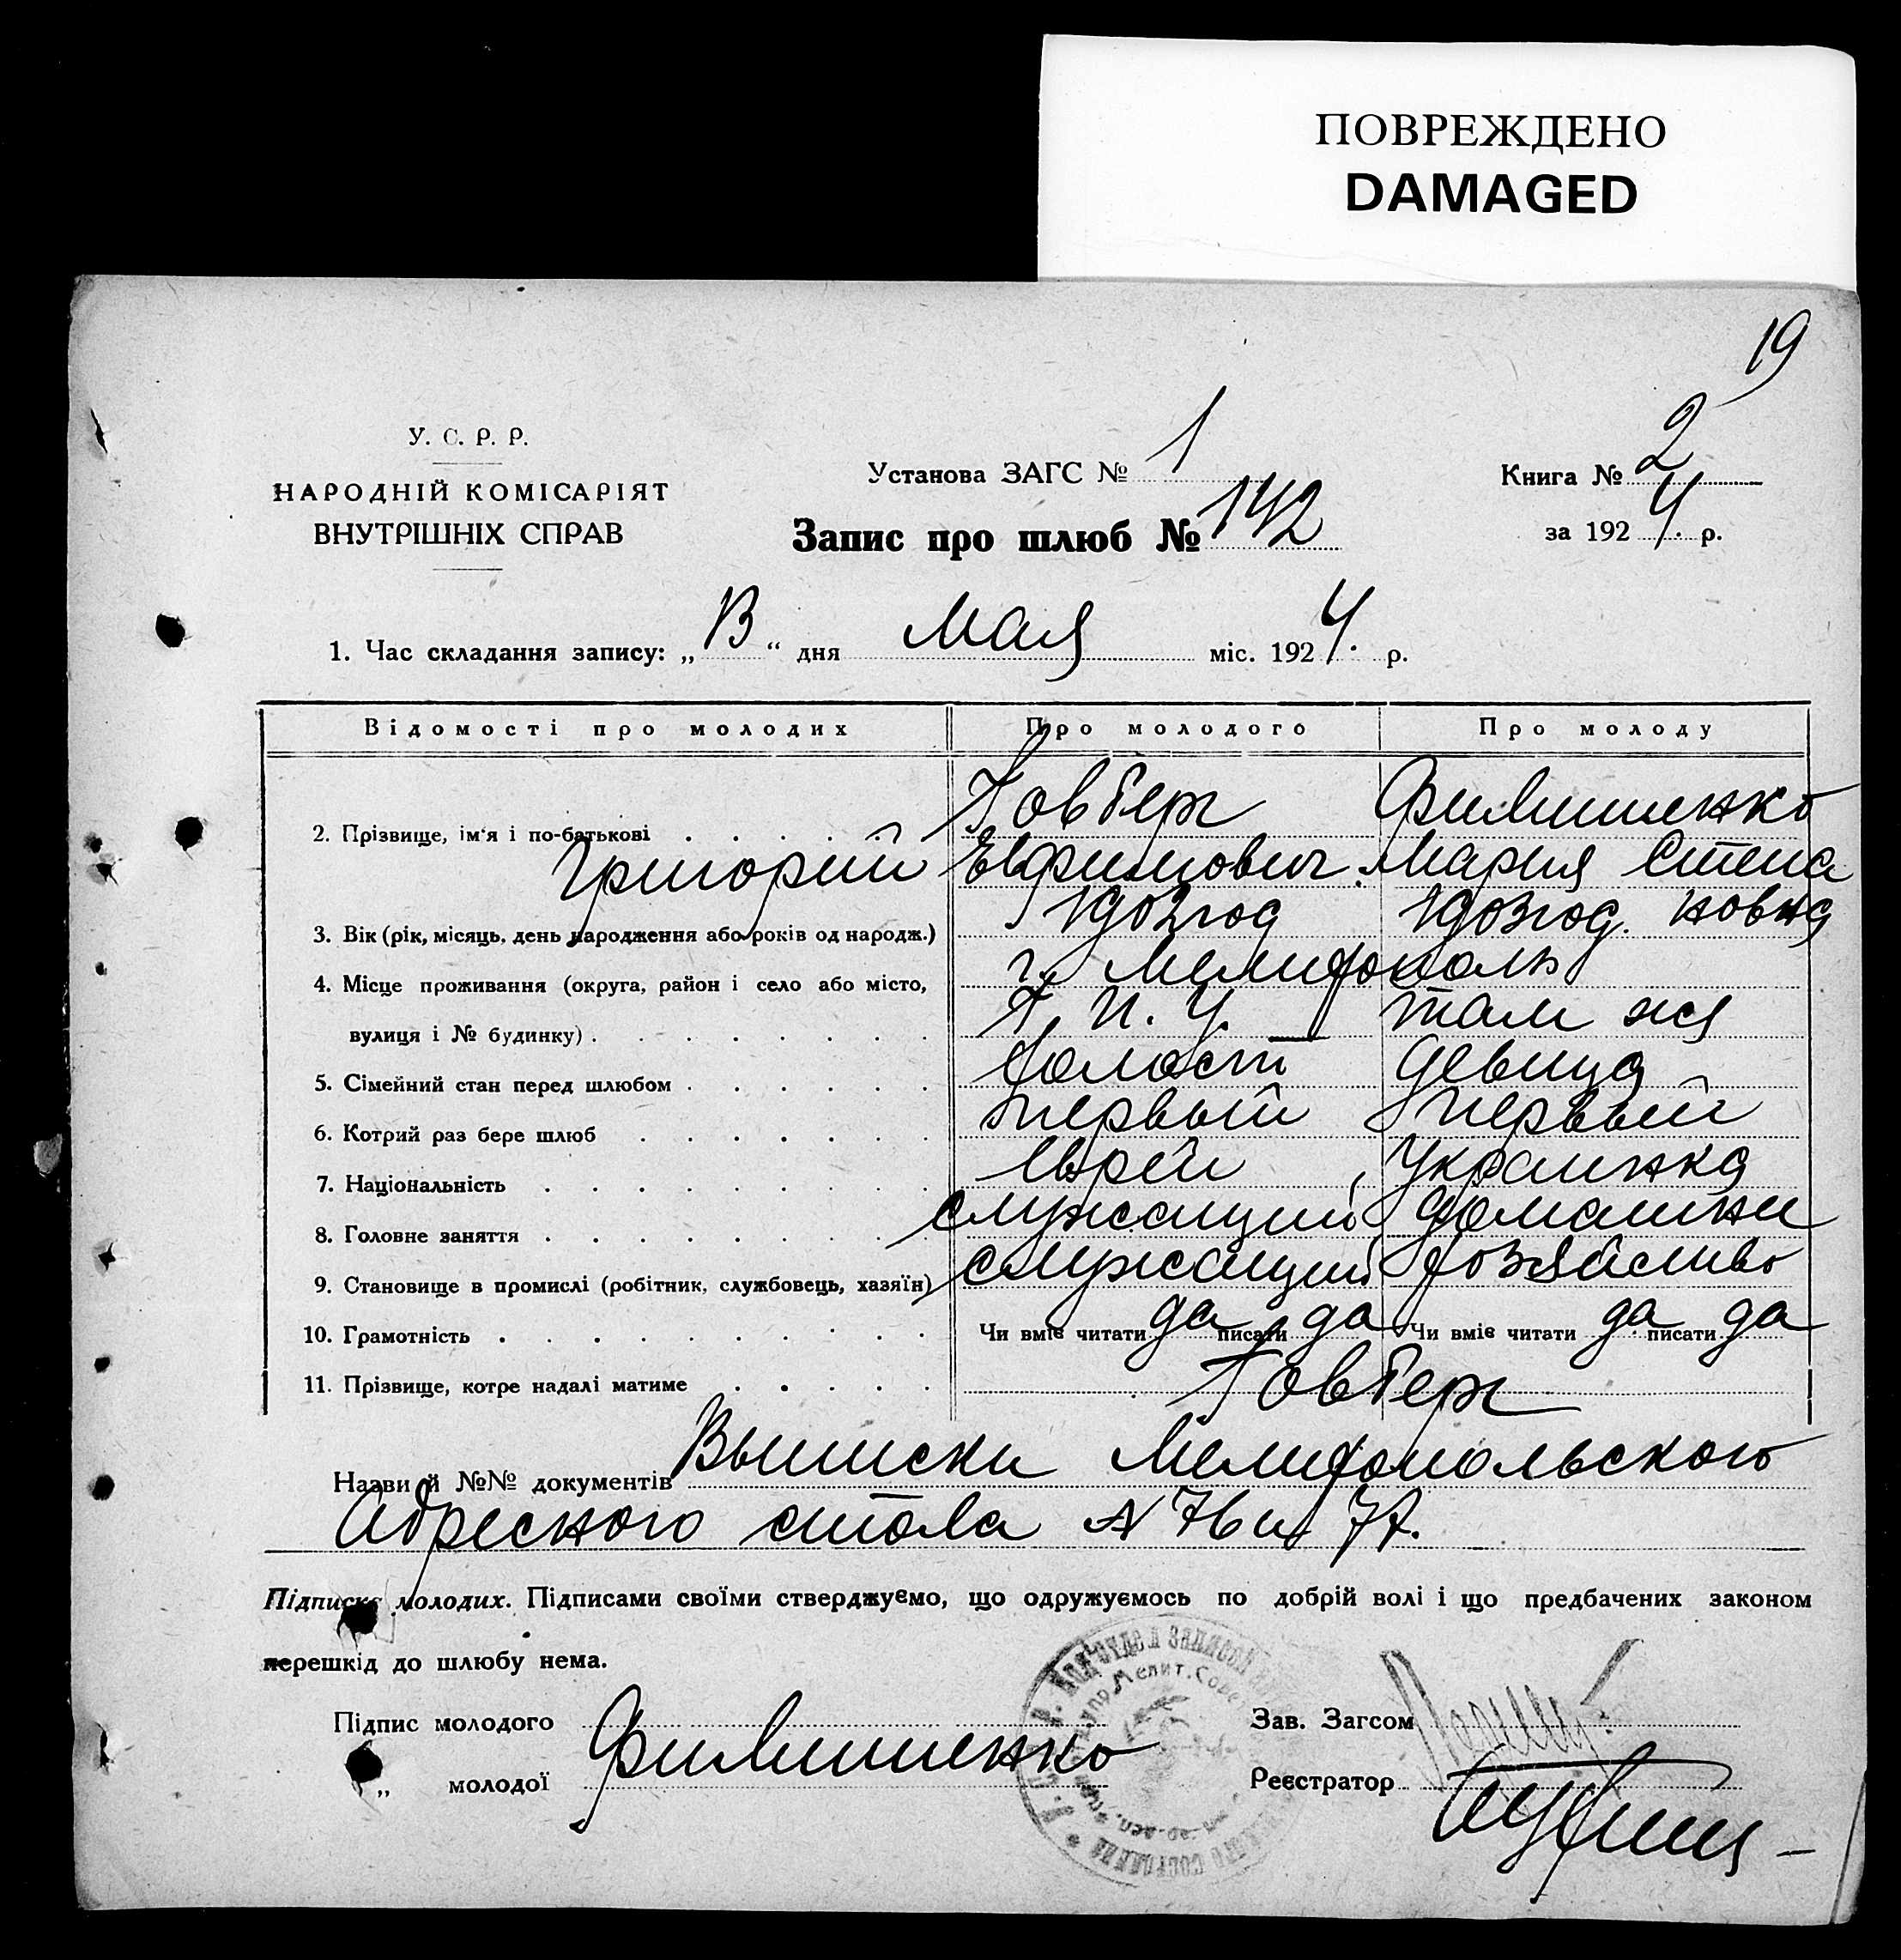 ПОВРЕЖДЕНО
DAMAGED
19
У. С. Р. Р.
НАРОДНІЙ КОМІСАРІЯТ
ВНУТРІШНІХ СПРАВ
Установа ЗАГС № 1
Запис про шлюб № 142
Книга № 2
за 1924. р.
1. Час складання запису: „13“ дня мая міс. 1924. р.
Відомості про молодих Про молодого Про молоду
2. Прізвище, ім'я і по-батькові Говберг Филипшенко
Григорий Евфимович Мария Степа
3. Вік (рік, місяць, день народження або років од народж.) 1902 год 1903 год. новна
4. Місце проживання (округа, район і село або місто, г. Мелитополь
вулиця і № будинку) Г. П. У. там же
5. Сімейний стан перед шлюбом холост девица
6. Котрий раз бере шлюб первый первый
7. Національність еврей украинка
8. Головне заняття служащий домашнее
9. Становище в промислі (робітник, службовець, хазяїн) служащий хозяйство
10. Грамотність Чи вміє читати да писати да Чи вміє читати да писати да
11. Прізвище, котре надалі матиме Говберг
Назви й №№ документів Выписки Мелитопольского
Адресного стола № 76 и 77.
Підписка молодих. Підписами своїми стверджуємо, що одружуємось по добрій волі і що предбачених законом
перешкід до шлюбу нема.
Підпис молодого
„ молодої Филипшенко
Зав. Загсом
Реєстратор